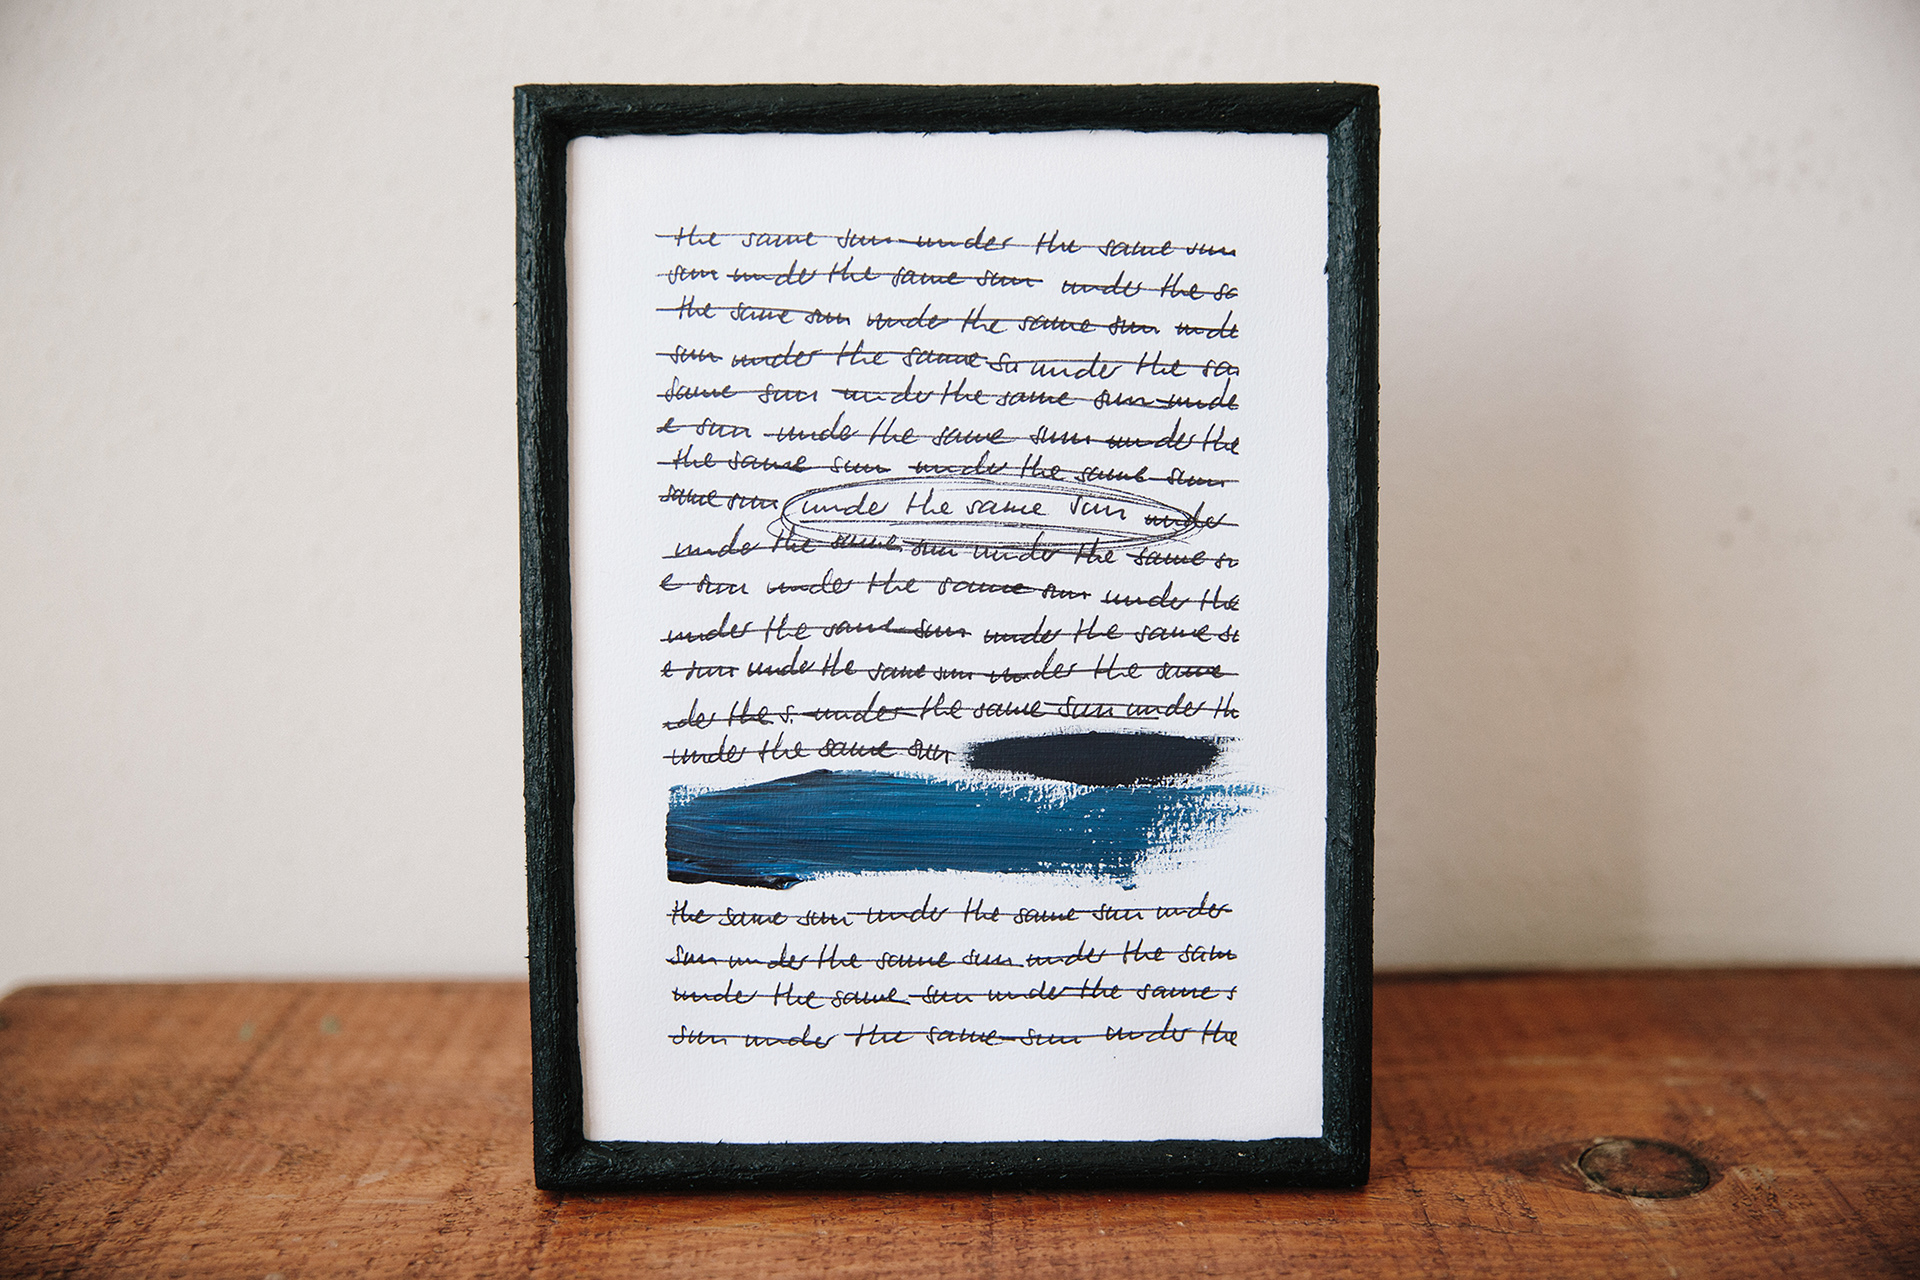 the same sun under the same sun
sun under the same sun under the sa
the same sun under the same sun unde
sun under the same su under the sa
same sun under the same sun unde
e sun under the same sun under the
the same sun under the same sun
same sun under the same sun under
under the same sun under the same su
e sun under the same sun under the
under the same sun under the same su
e sun under the same sun under the same
der the s under the same sun under th
under the same sun
the same sun under the same sun under
sun under the same sun under the sam
under the same sun under the same s
sun under the same sun under the